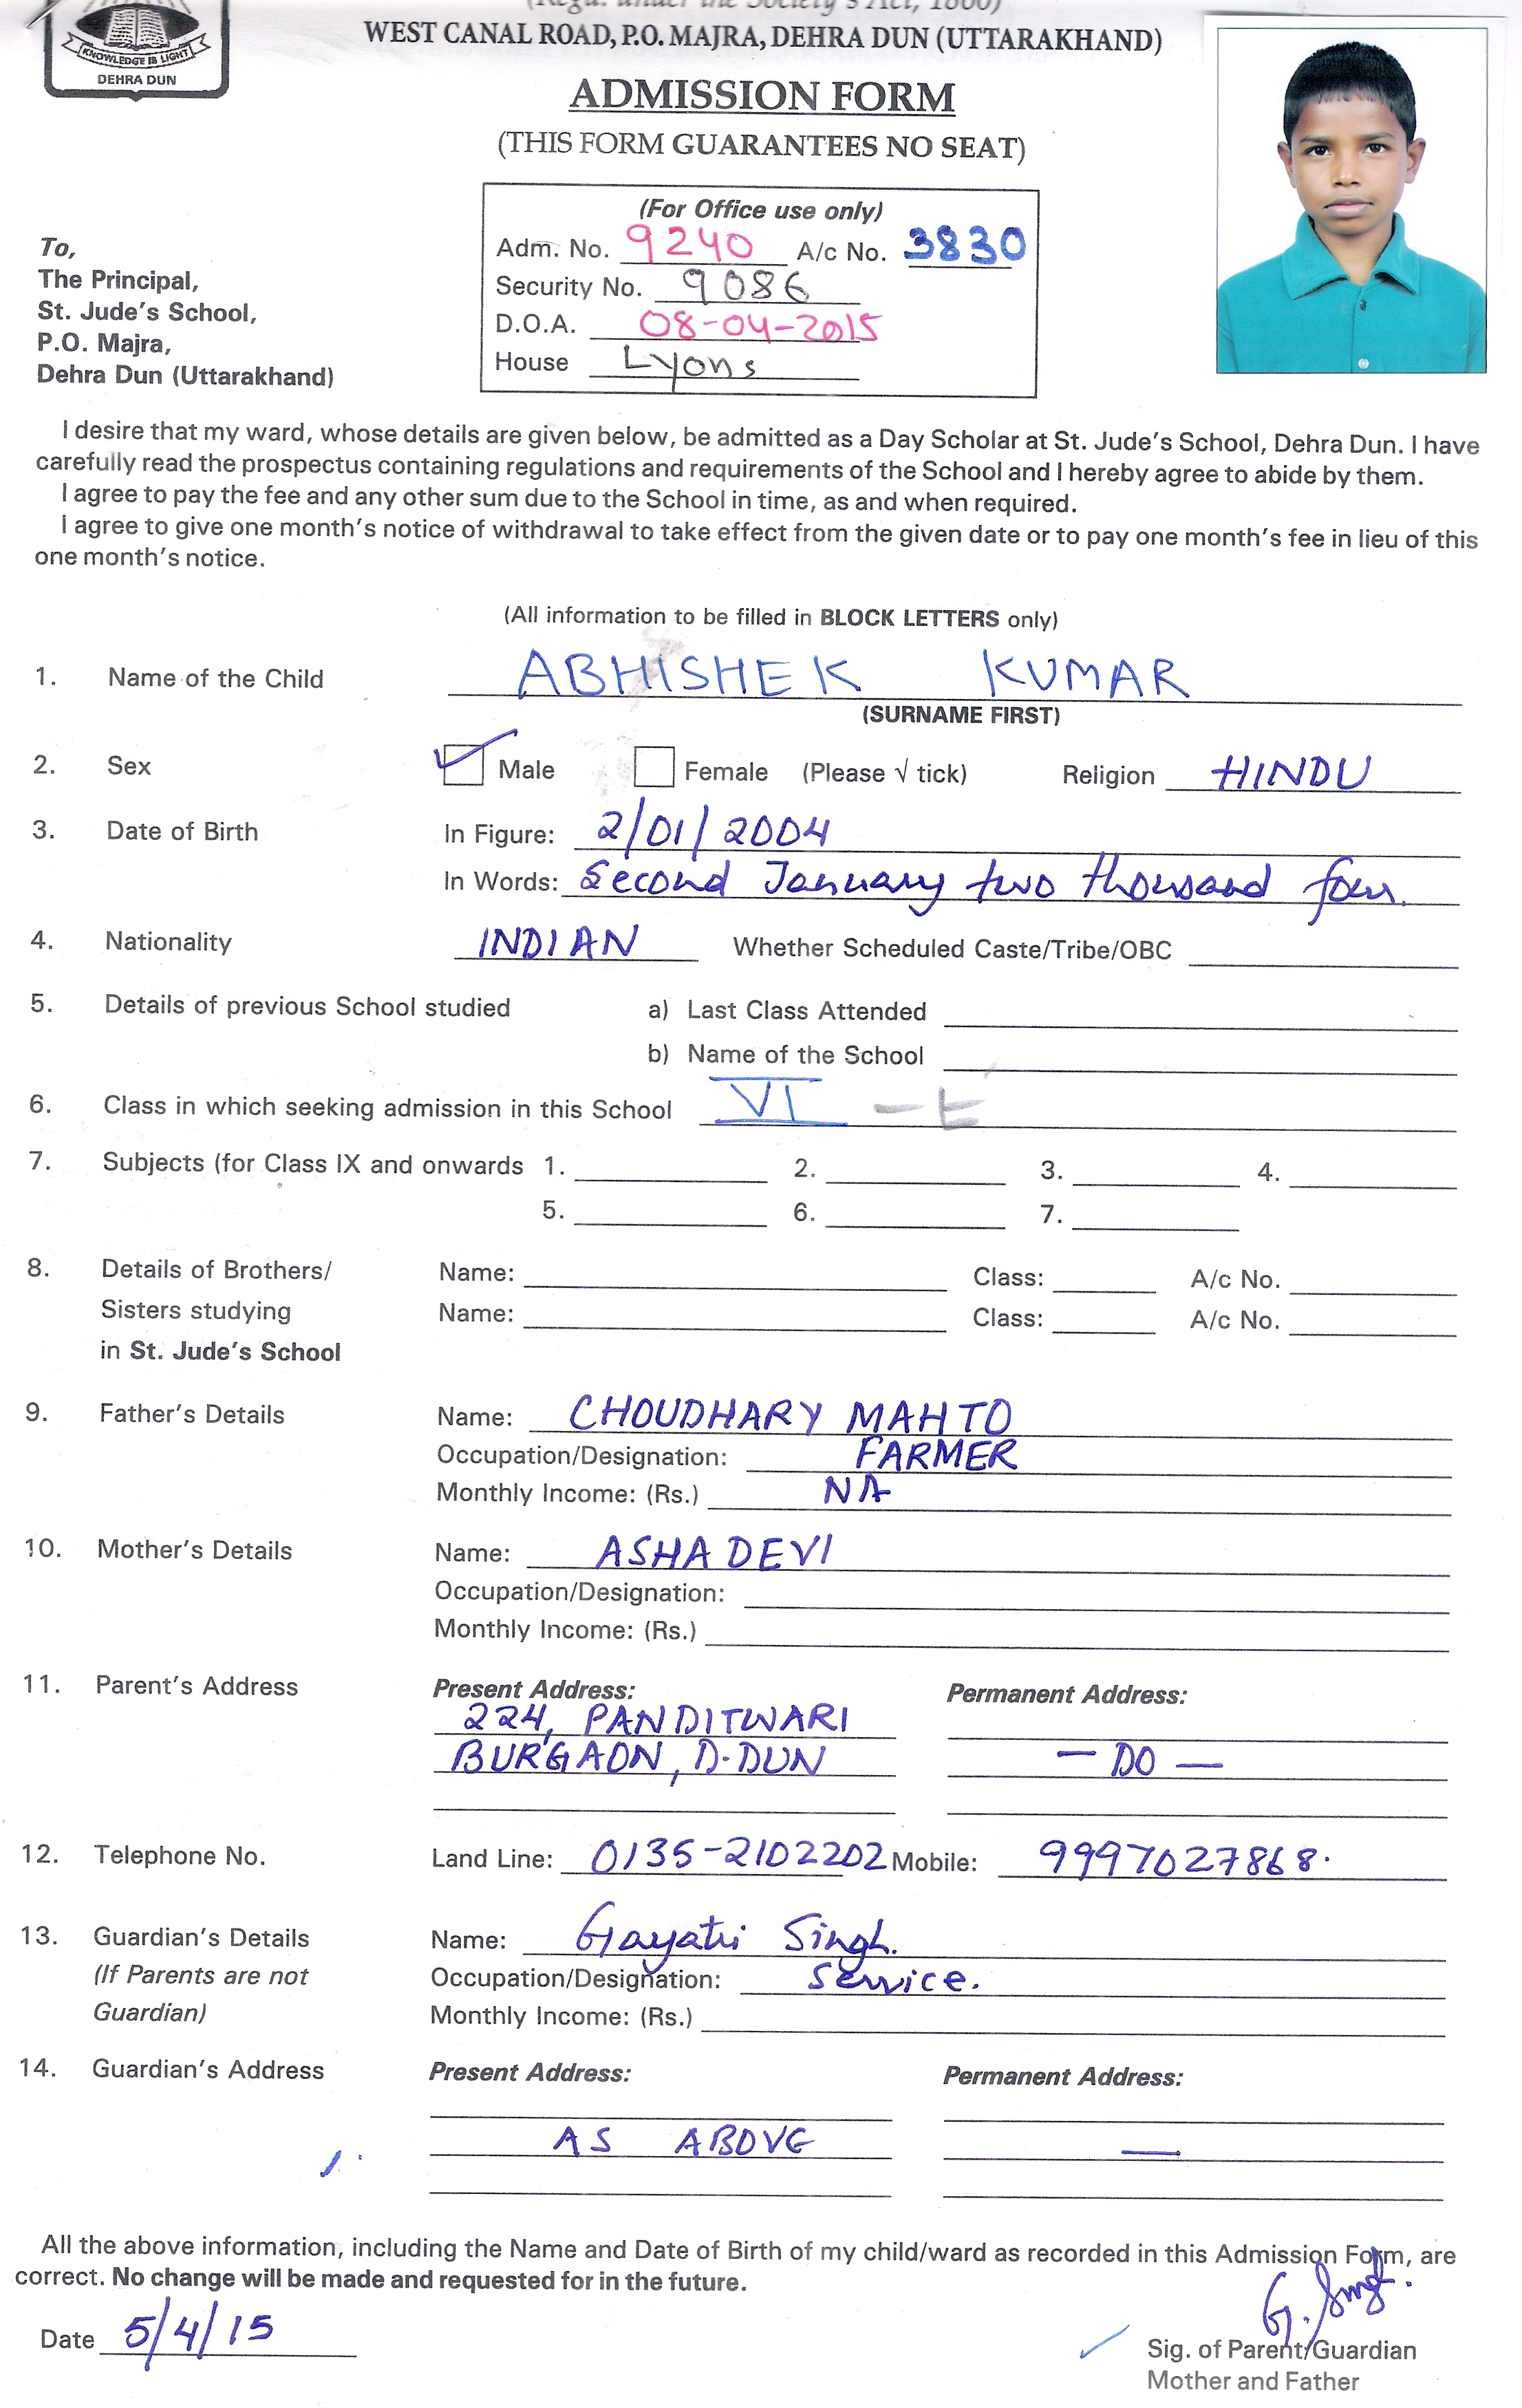 (Regd. under the Society's Act, 1860)
WEST CANAL ROAD, P.O. MAJRA, DEHRA DUN (UTTARAKHAND)
KNOWLEDGE IS LIGHT
DEHRA DUN
ADMISSION FORM
(THIS FORM GUARANTEES NO SEAT)
(For Office use only)
Adm. No. 9240 A/c No. 3830
Security No. 9086
D.O.A. 08-04-2015
House Lyons
To,
The Principal,
St. Jude's School,
P.O. Majra,
Dehra Dun (Uttarakhand)
I desire that my ward, whose details are given below, be admitted as a Day Scholar at St. Jude's School, Dehra Dun. I have
carefully read the prospectus containing regulations and requirements of the School and I hereby agree to abide by them.
I agree to pay the fee and any other sum due to the School in time, as and when required.
I agree to give one month's notice of withdrawal to take effect from the given date or to pay one month's fee in lieu of this
one month's notice.
(All information to be filled in BLOCK LETTERS only)
1. Name of the Child ABHISHEK KUMAR
(SURNAME FIRST)
2. Sex ✓ Male Female (Please √ tick) Religion HINDU
3. Date of Birth In Figure: 2/01/2004
In Words: Second January two thousand four.
4. Nationality INDIAN Whether Scheduled Caste/Tribe/OBC
5. Details of previous School studied a) Last Class Attended
b) Name of the School
6. Class in which seeking admission in this School VI - E
7. Subjects (for Class IX and onwards 1. 2. 3. 4.
5. 6. 7.
8. Details of Brothers/ Name: Class: A/c No.
Sisters studying Name: Class: A/c No.
in St. Jude's School
9. Father's Details Name: CHOUDHARY MAHTO
Occupation/Designation: FARMER
Monthly Income: (Rs.) NA
10. Mother's Details Name: ASHA DEVI
Occupation/Designation:
Monthly Income: (Rs.)
11. Parent's Address Present Address: Permanent Address:
224, PANDITWARI
BURGAON, D.DUN — DO —
12. Telephone No. Land Line: 0135-2102202 Mobile: 9997027868.
13. Guardian's Details Name: Gayatri Singh.
(If Parents are not Occupation/Designation: Service.
Guardian) Monthly Income: (Rs.)
14. Guardian's Address Present Address: Permanent Address:
AS ABOVE —
All the above information, including the Name and Date of Birth of my child/ward as recorded in this Admission Form, are
correct. No change will be made and requested for in the future.
G. Singh.
Date 5/4/15
Sig. of Parent/Guardian
Mother and Father